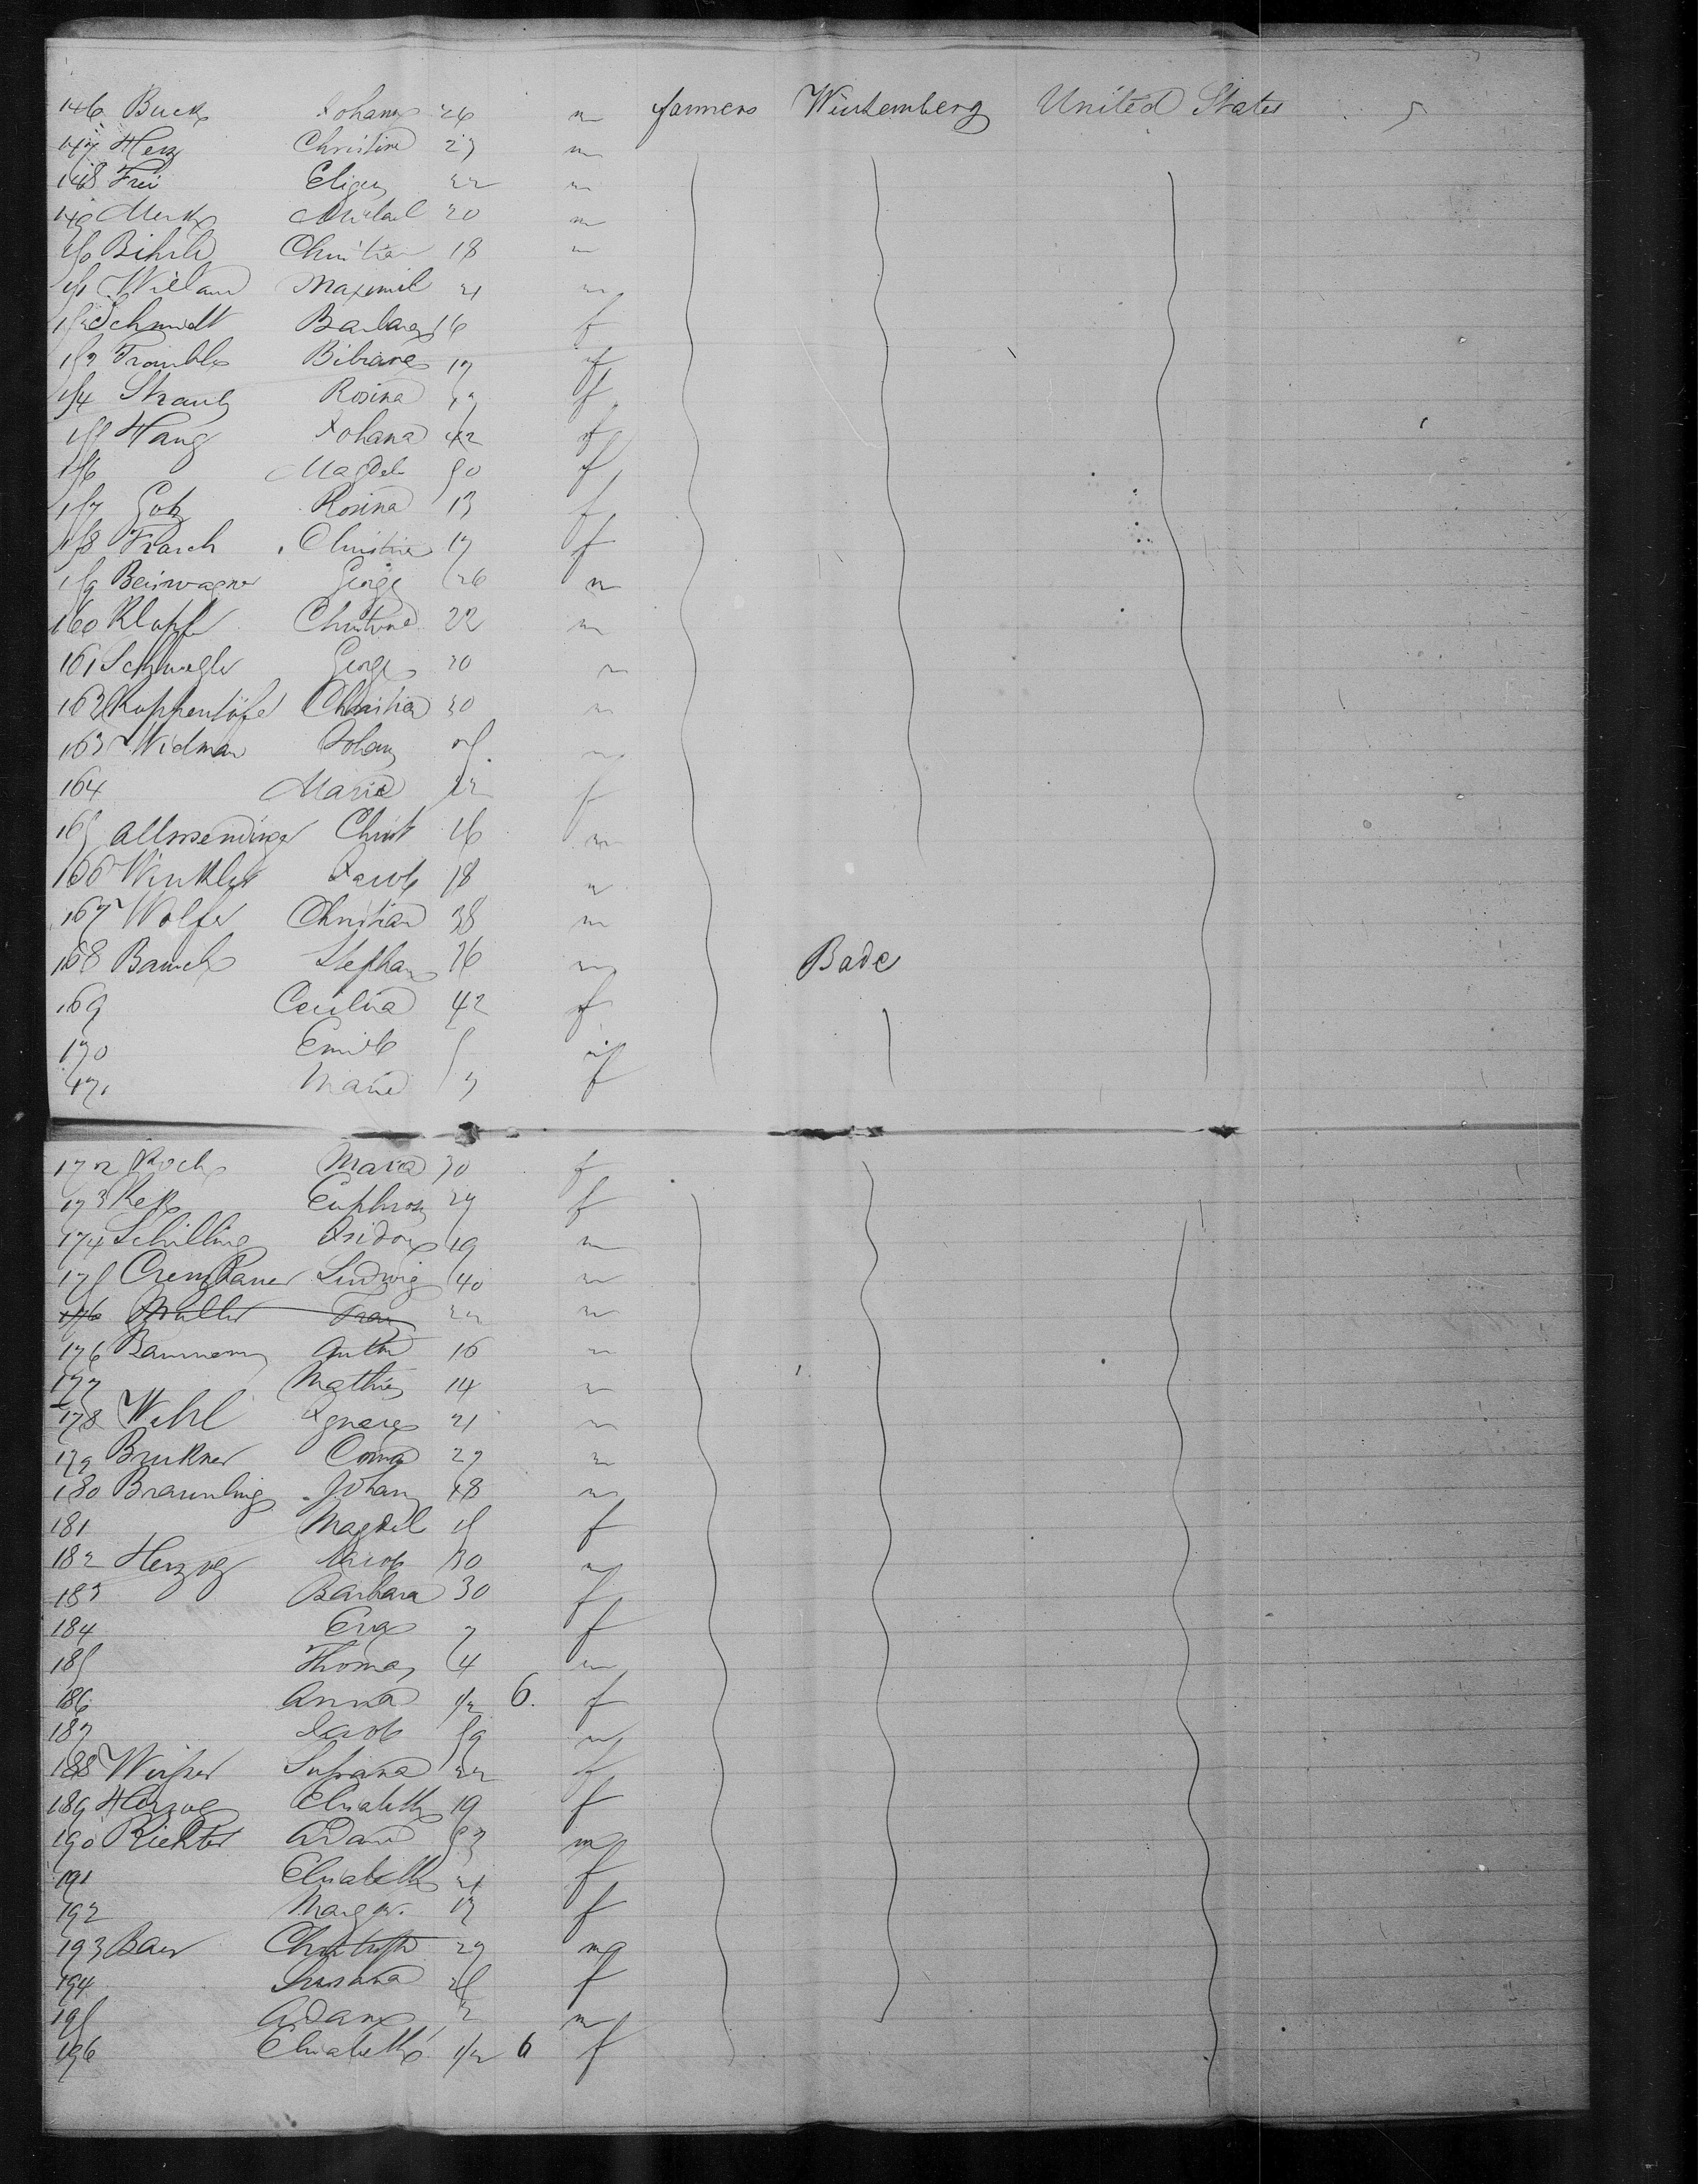 146 Buck Johann 26 m farmers Wurtemberg United States
147 Herz Christine 27 m
148 Frei 22 m
149 Merk Michael 20 m
150 Bihrle Christian 18 m
151 Wieland Maximil 21 m
152 Schmidt Barbara 16 f
153 Trombles Bibiane 17 f
154 Straub Rosina f
155 Haug Johana 42 f
156 Magdal 50 f
157 Gotz Rosina 13 f
158 Frasch Christine 17 f
159 Beiswagner George 26 m
160 Klopfer Christine 22 m
161 Schwegler George 20 m
162 Christian 30 m
163 Widman Johan m
164 Maria 22 f
165 Allmendinger Christ 16 m
166 Winkler Jacob 18 m
167 Wolfer Christian 38 m
168 Stephan m Bade
169 Cecilia 42 f
170 Emile 5 f
171 Marie 3 f
172 Koch Maria 30 f
173 Keß Euphros 27 f
174 Schilling Isidor 19 m
175 Ludwig 40 m
176 Muller Franz 22 m
176 Baumann Anton 16 m
177 Mathias 14 m
178 Wehl Ignatz 21 m
179 Brukner Conrad 27 m
180 Braunling Johann 48 m
181 Magdal 15 f
182 Herzog Jacob 30 m
183 Barbara 30 f
184 Eva 7 f
185 Thomas 4 m
186 Anna 1/2 6. f
187 Jacob 59 m
188 Susana 22 f
189 Herzog Elisabeth 19 f
190 Richter Adam 53 m
191 Elisabeth 21 f
192 Margar. 17 f
193 Baer Christoph 27 m
194 Susanna 25 f
195 Adam 2 m
196 Elisabeth 1/2 6 f